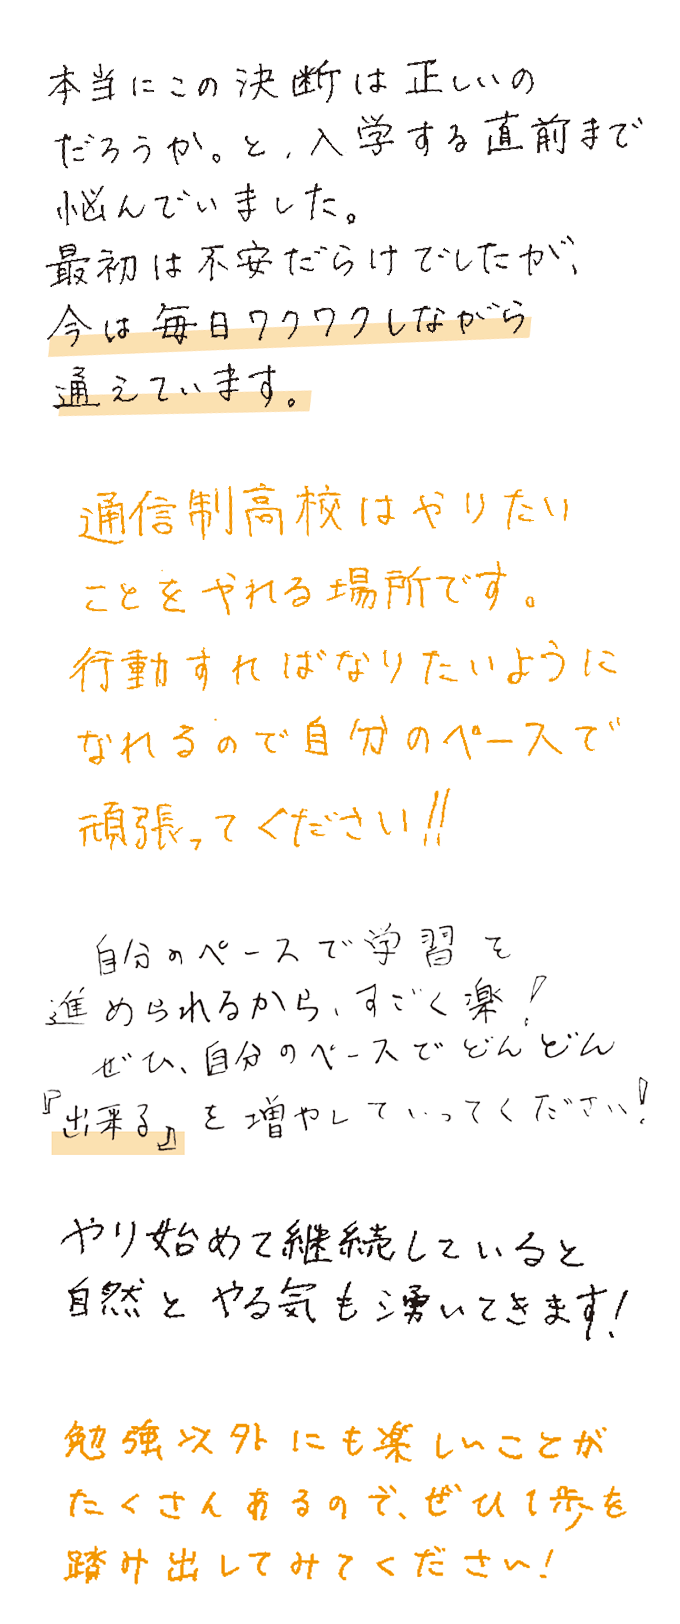 本当にこの決断は正しいの
だろうか。と、入学する直前まで
悩んでいました。
最初は不安だらけでしたが、
今は毎日ワクワクしながら
通えています。
通信制高校はやりたい
ことをやれる場所です。
行動すればなりたいように
なれるので自分のペースで
頑張ってください!!
自分のペースで学習を
進められるから、すごく楽!
ぜひ、自分のペースでどんどん
『出来る』を増やしていってください!
やり始めて継続していると
自然とやる気も湧いてきます!
勉強以外にも楽しいことが
たくさんあるので、ぜひ1歩を
踏み出してみてください!